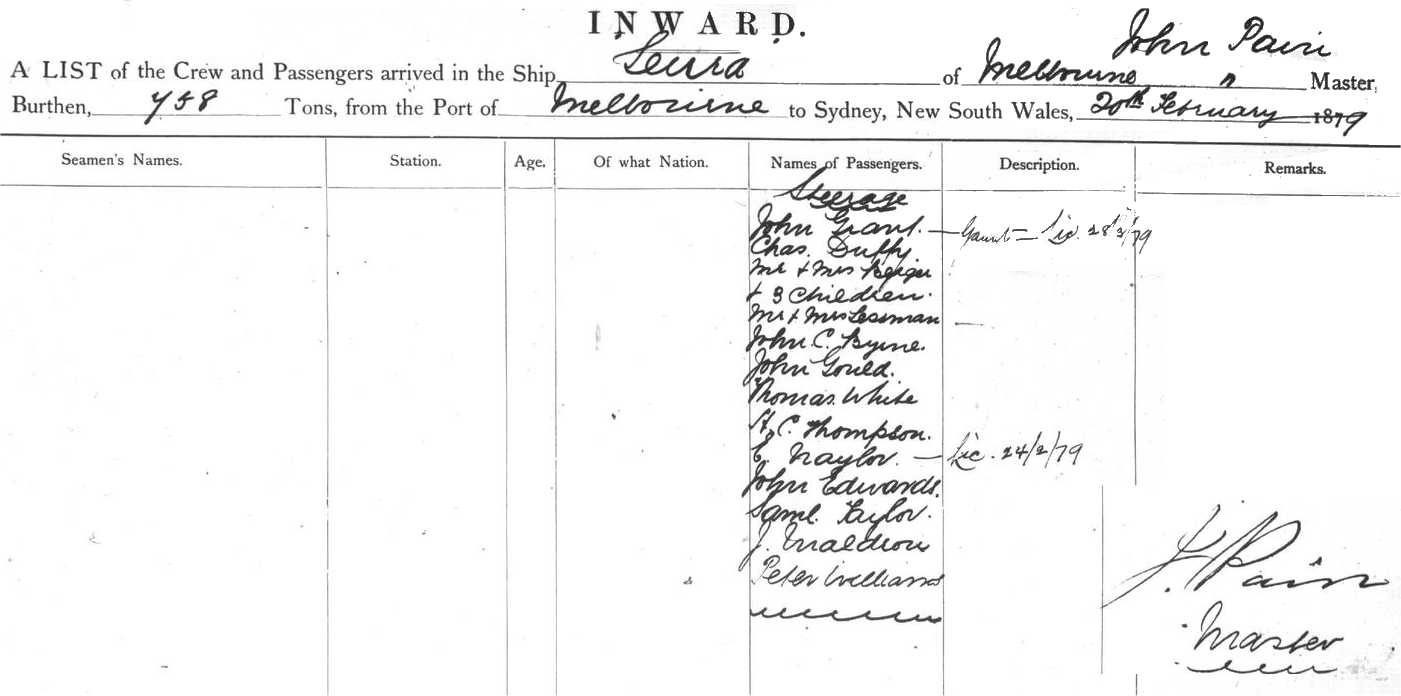 INWARD.
John Pain
A LIST of the Crew and Passengers arrived in the Ship of Melbourne " Master,
Burthen, 758 Tons, from the Port of Melbourne to Sydney, New South Wales, 20th February 1879
Seamen's Names. Station. Age. Of what Nation. Names of Passengers. Description. Remarks.
Steerage
John Grant. — Gaunt — Lic. 28/2/79
Chas. Duffy.
Mr & Mrs Berger
& 3 Children.
Mr & Mrs Lessman —
John C. Byrne.
John Gould.
Thomas White
C. Thompson.
E. Naylor. — Lic. 24/2/79
John Edwards.
Saml. Taylor.
J. Waldron
Peter Williams
J. Pain
Master